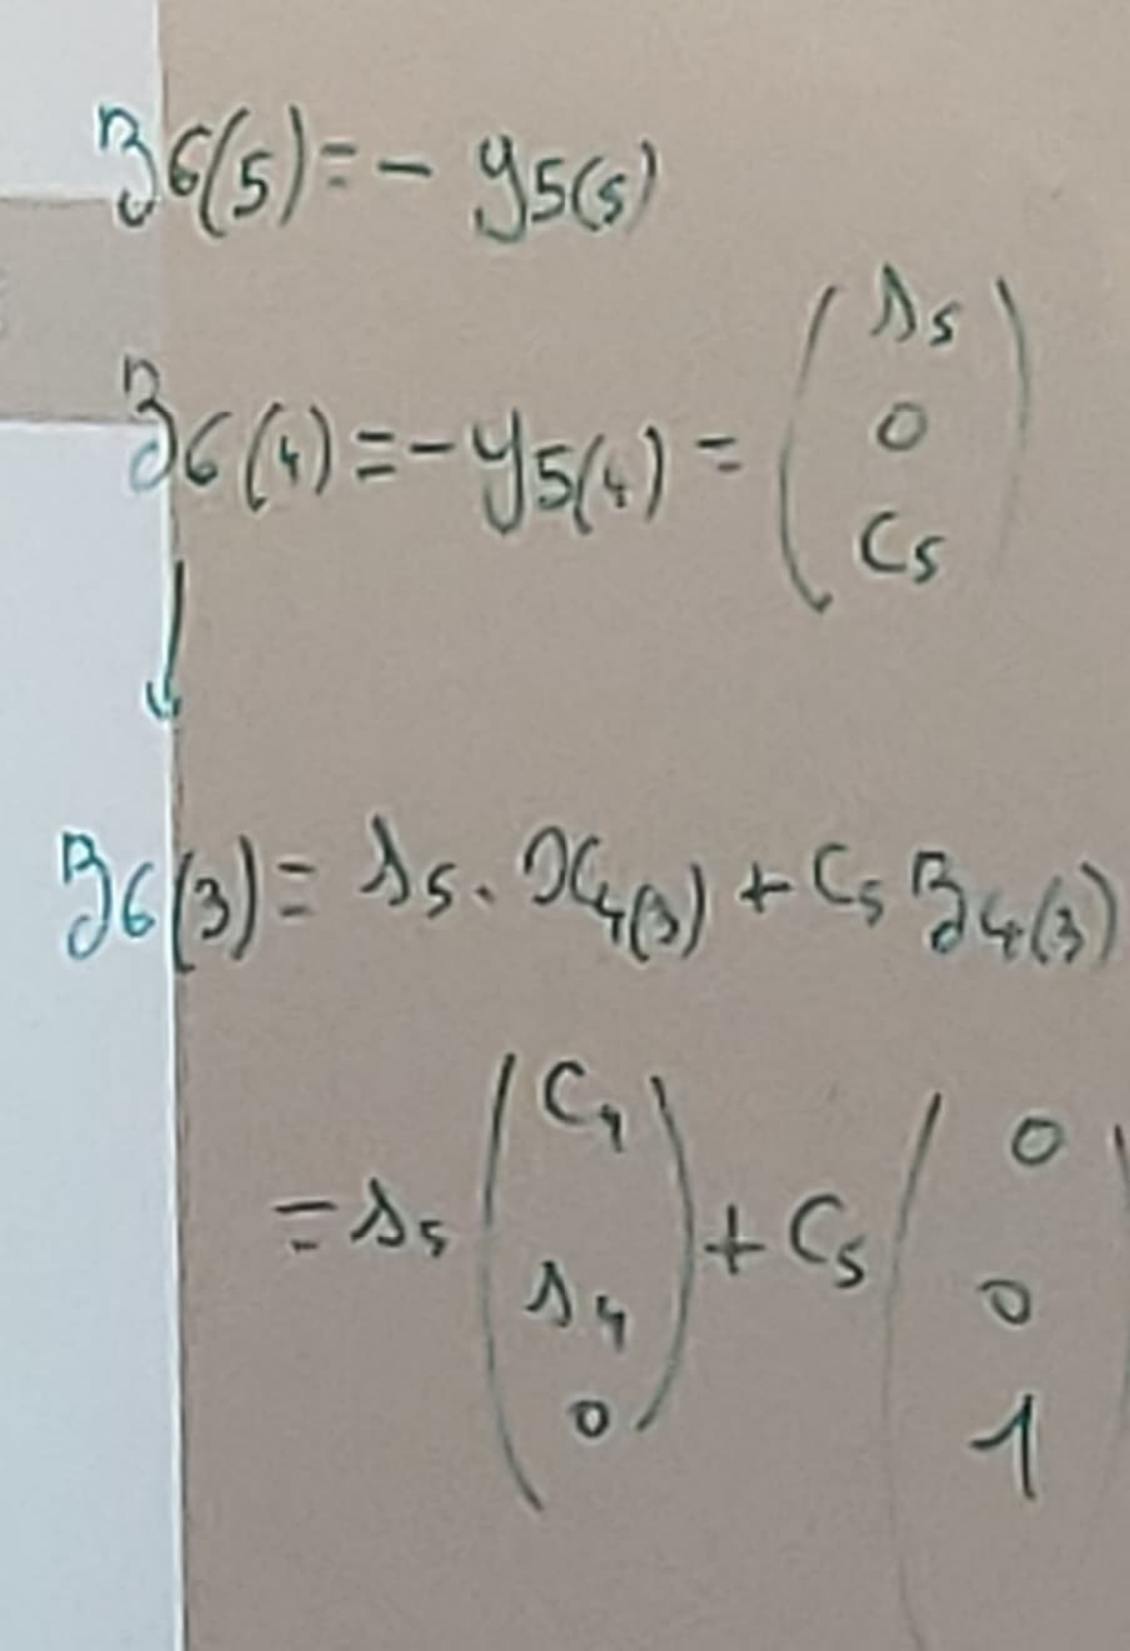 z6(5) = - y5(5)
z6(4) = - y5(4) = ( s5 0 c5 )
↓
z6(3) = s5 . x4(3) + c5 z4(3)
= s5 ( c4 s4 0 ) + c5 ( 0 0 1 )